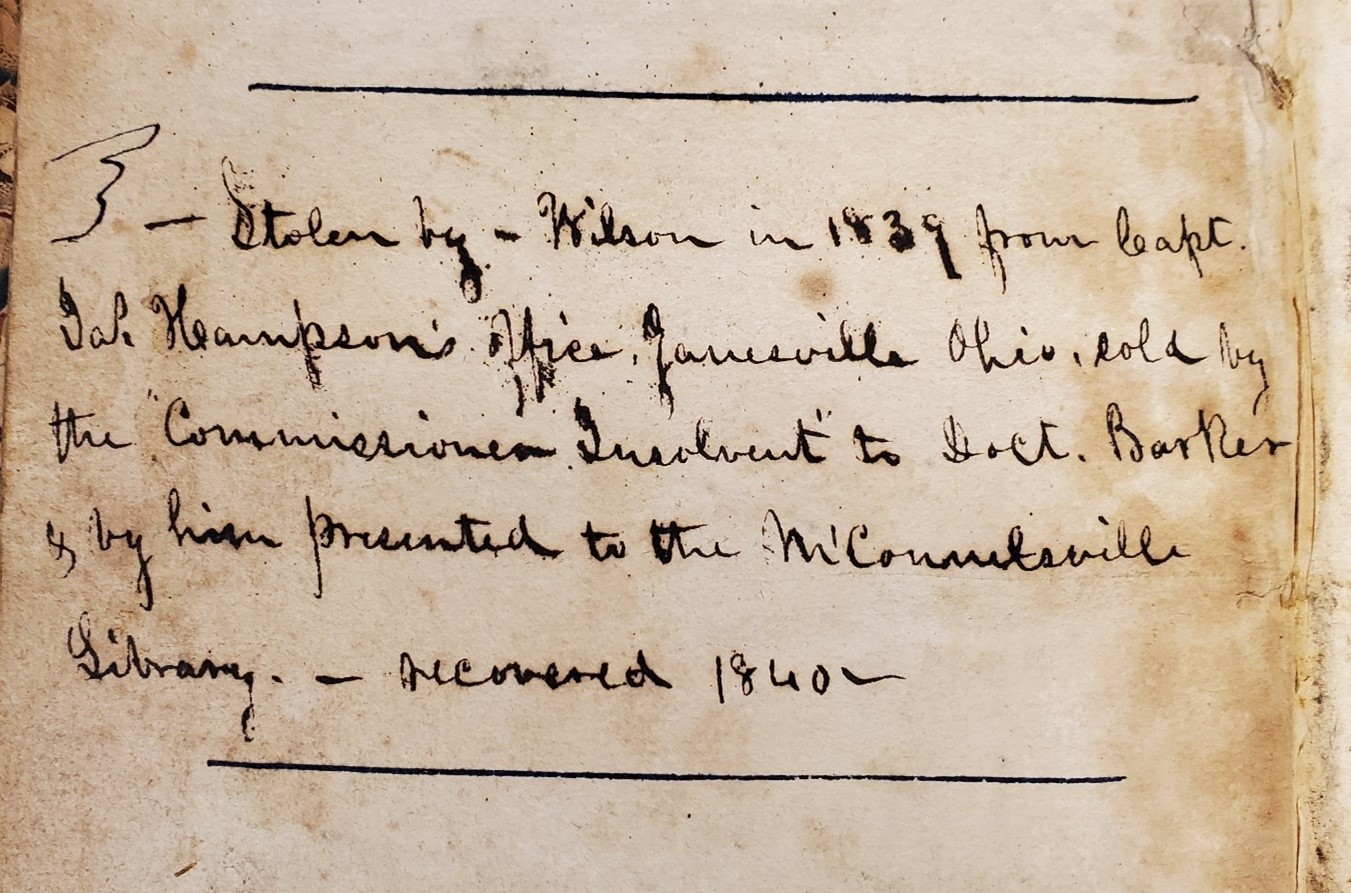 3 — Stolen by - Wilson in 1839 from Capt.
Jas Hampson's Office, Zanesville Ohio, sold by
the "Commissioner Insolvent" to Doct. Barker
& by him presented to the McConnelsville
Library. — recovered 1840 —